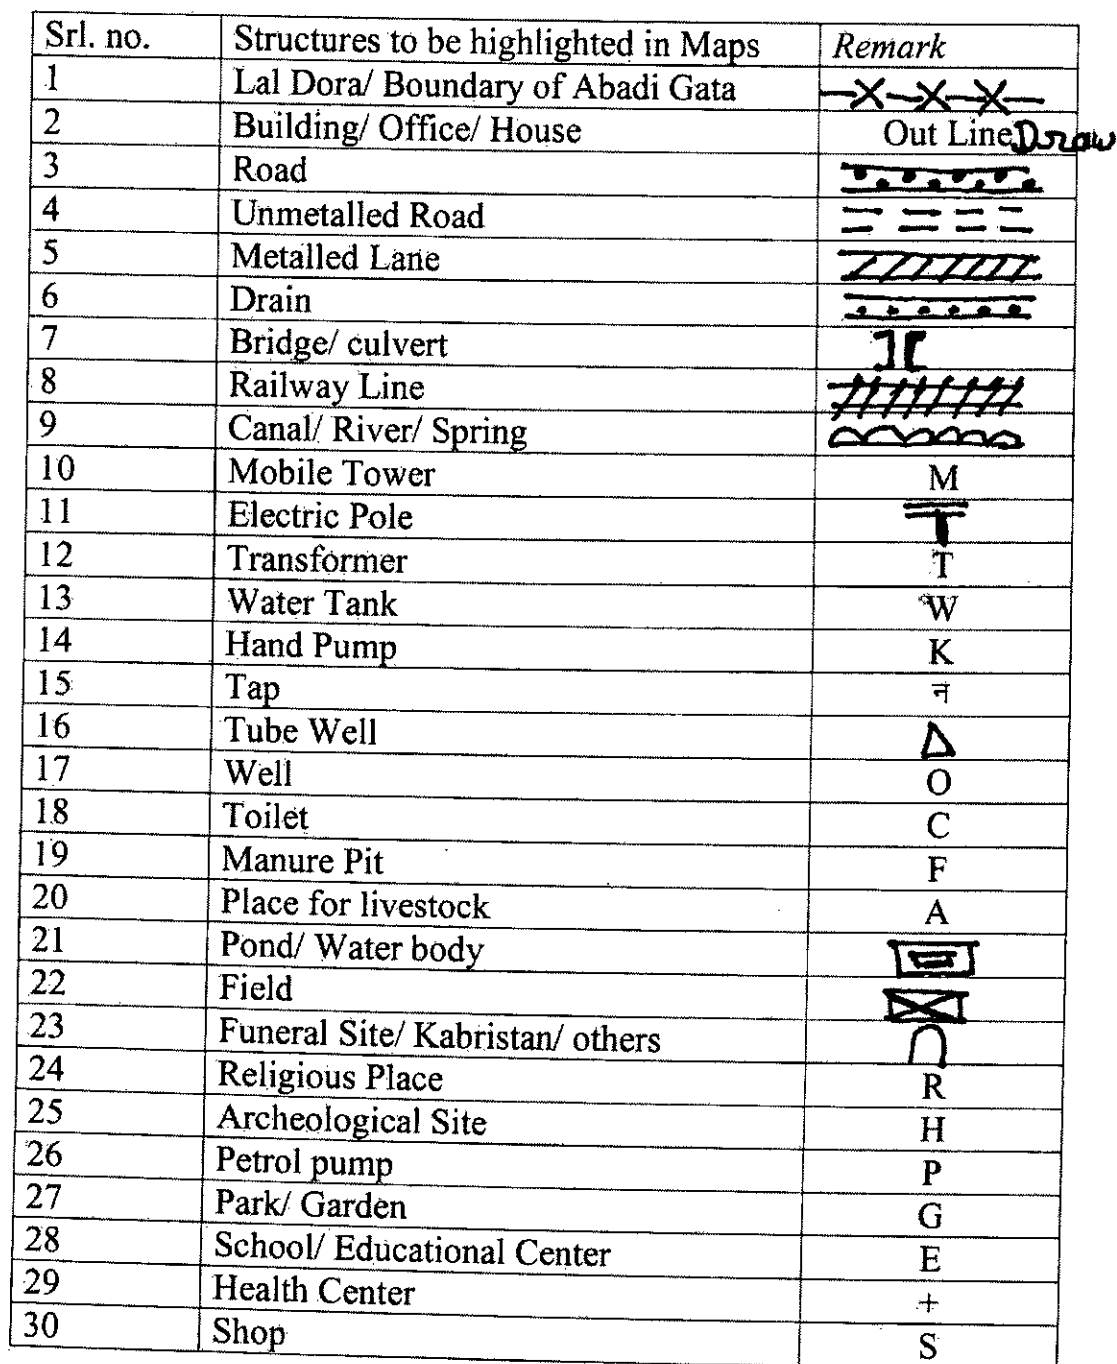 Srl. no. Structures to be highlighted in Maps Remark
1 Lal Dora/ Boundary of Abadi Gata
2 Building/ Office/ House Out Line Draw
3 Road
4 Unmetalled Road
5 Metalled Lane
6 Drain
7 Bridge/ culvert
8 Railway Line
9 Canal/ River/ Spring
10 Mobile Tower M
11 Electric Pole
12 Transformer T
13 Water Tank W
14 Hand Pump K
15 Tap न
16 Tube Well
17 Well O
18 Toilet C
19 Manure Pit F
20 Place for livestock A
21 Pond/ Water body
22 Field
23 Funeral Site/ Kabristan/ others
24 Religious Place R
25 Archeological Site H
26 Petrol pump P
27 Park/ Garden G
28 School/ Educational Center E
29 Health Center +
30 Shop S